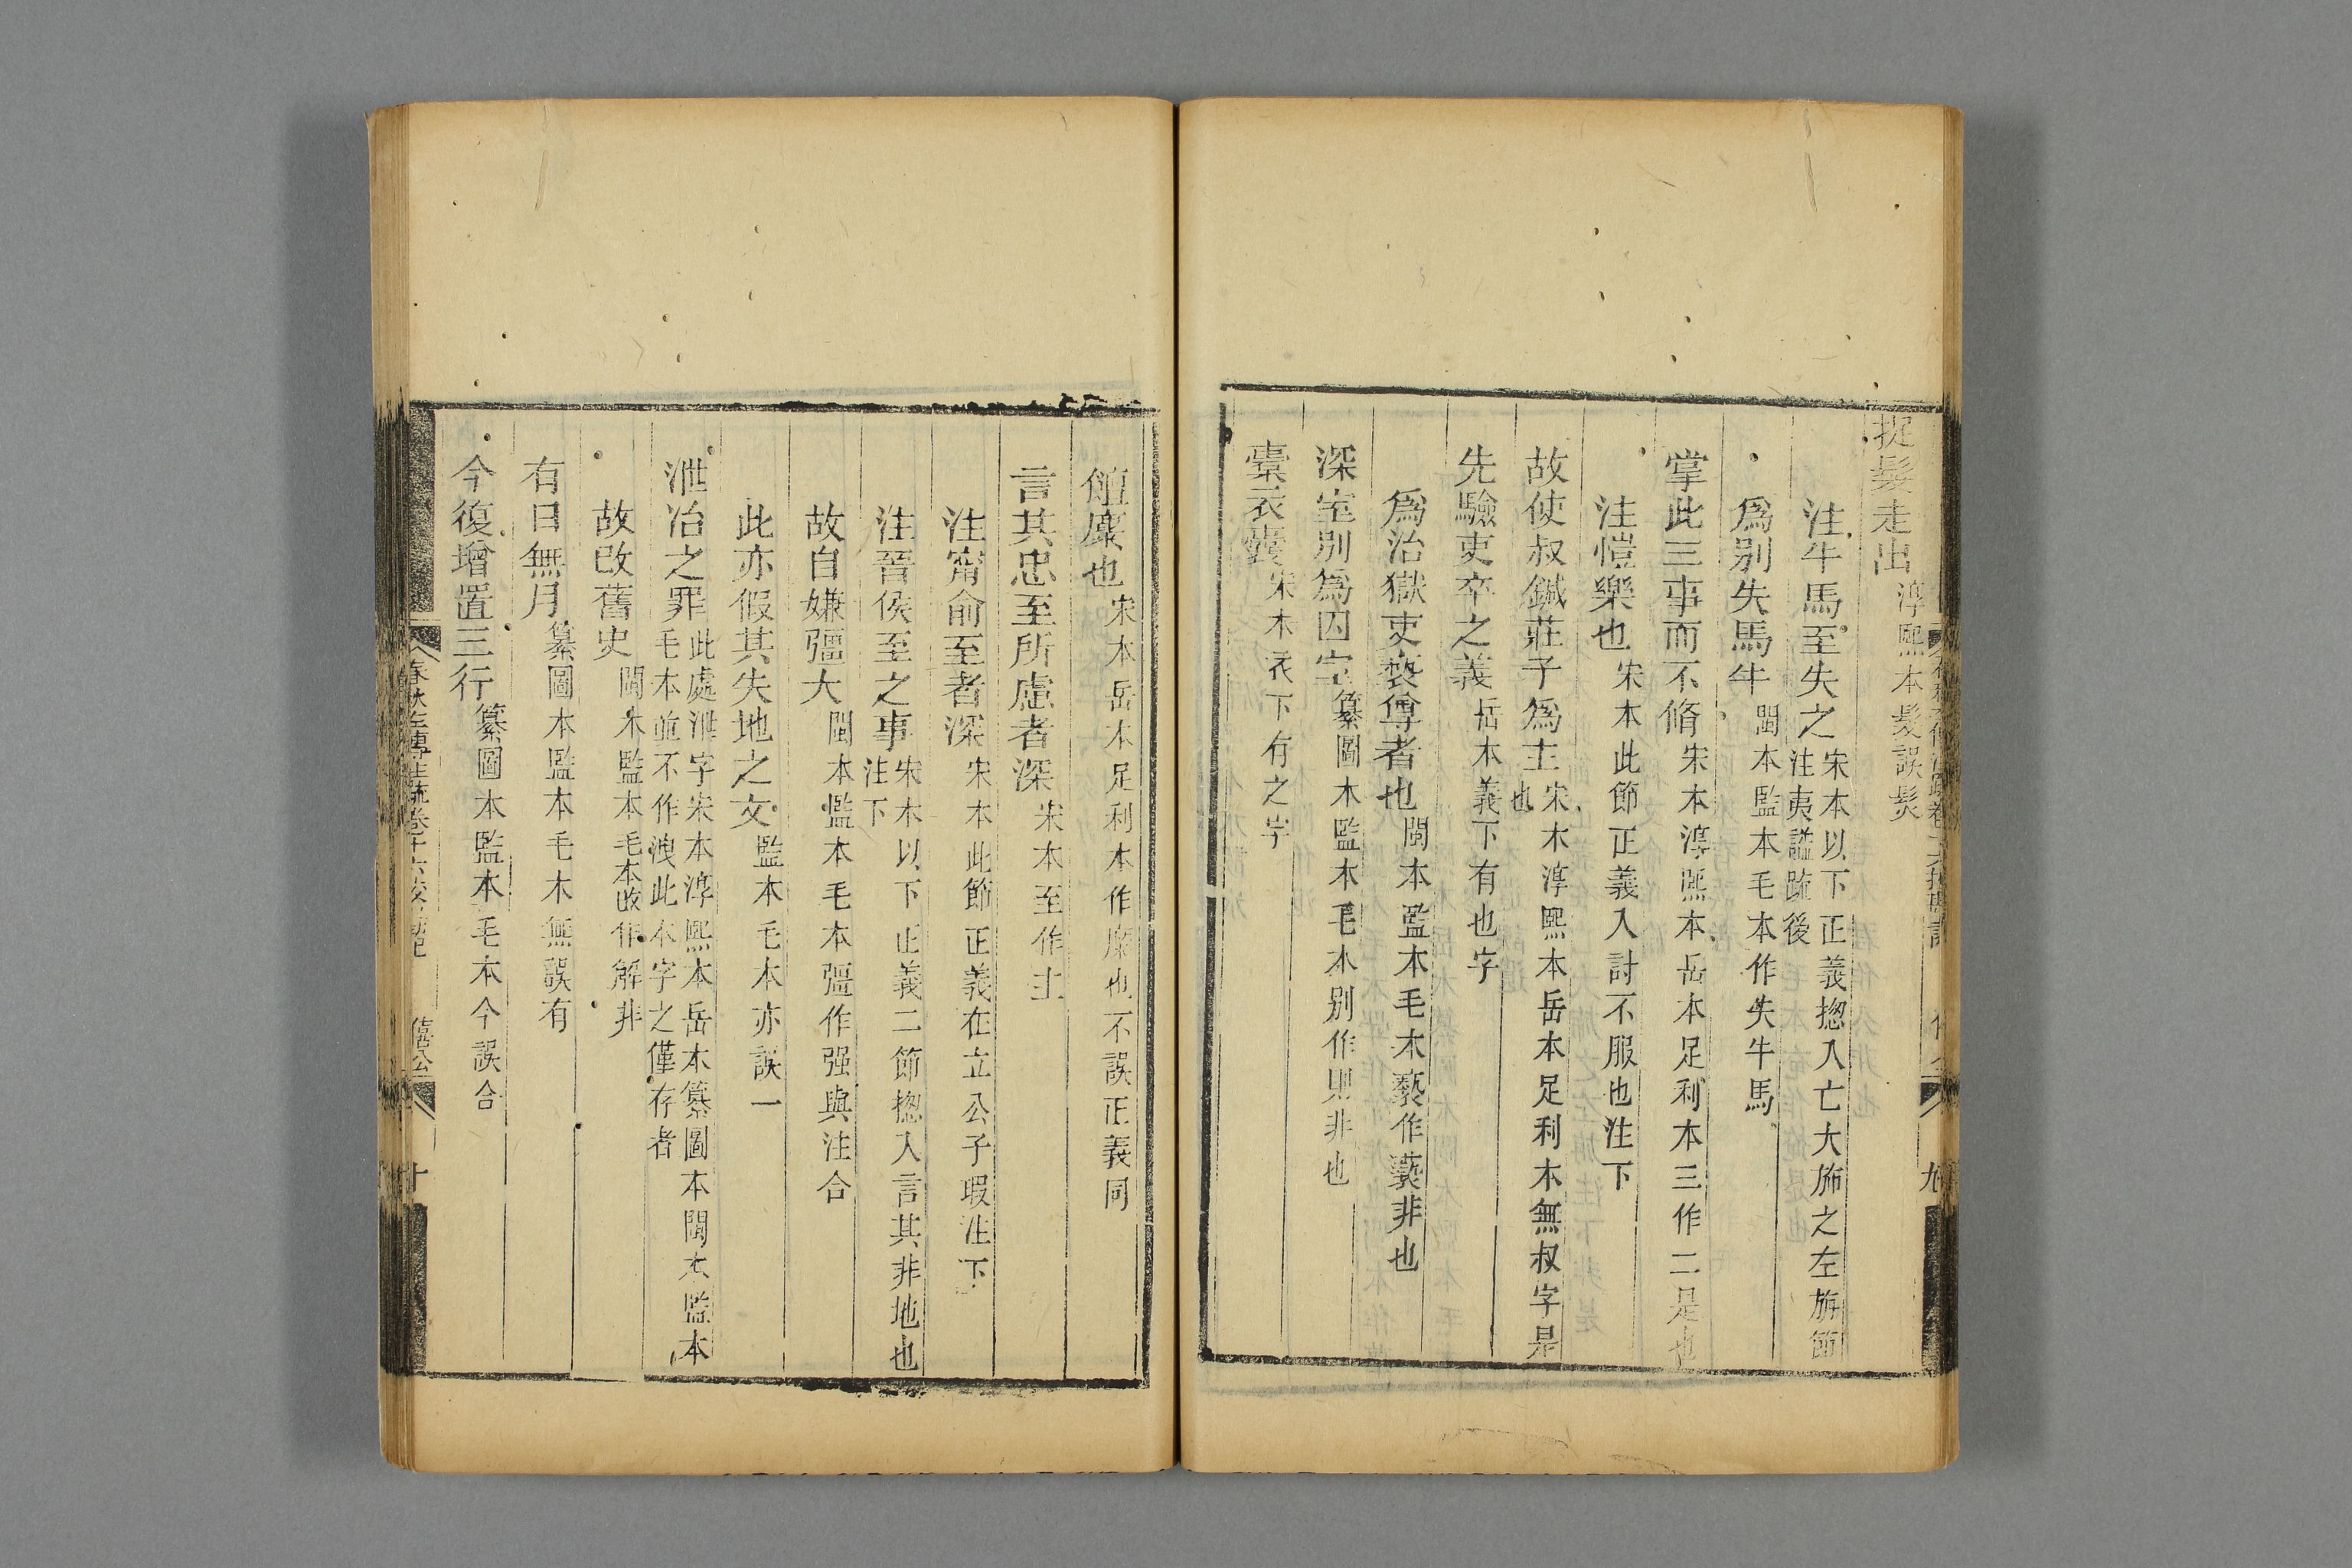 捉髮走出淳熙本髮誤髟
注牛馬至失之宋本以下正義揔入亡大斾之左旃節
注夷謚䟽後
爲別失馬牛閩本監本毛本作失牛馬
掌此三事而不脩宋本淳熙本岳本足利本三作二是也
注愷樂也宋本此節正義入討不服也注下
故使叔鍼莊子爲主宋本淳熙本岳本足利本無叔字是
也
先驗吏卒之義岳本義下有也字
爲治獄吏褻尊者也閩本監本毛本褻作䙝非也
深室別爲囚室纂圖本監本毛本別作則非也
橐衣囊宋本衣下有之字
饘糜也宋本岳本足利本作糜也不誤正義同
言其忠至所慮者深宋本至作主
注甯俞至者深宋本此節正義在立公子瑕注下
注晉侯至之事宋本以下正義二節揔入言其非地也
注下
故自嫌彊大閩本監本毛本彊作强與注合
此亦假其失地之文監本毛本亦誤一
泄冶之罪此處泄字宋本淳熙本岳本纂圖本閩本監本
毛本並不作洩此本字之僅存者
故改舊史閩本監本毛本改作解非
有日無月纂圖本監本毛本無誤有
今復增置三行纂圖本監本毛本今誤合
春秋左傳注疏卷十六校勘記 僖公 十